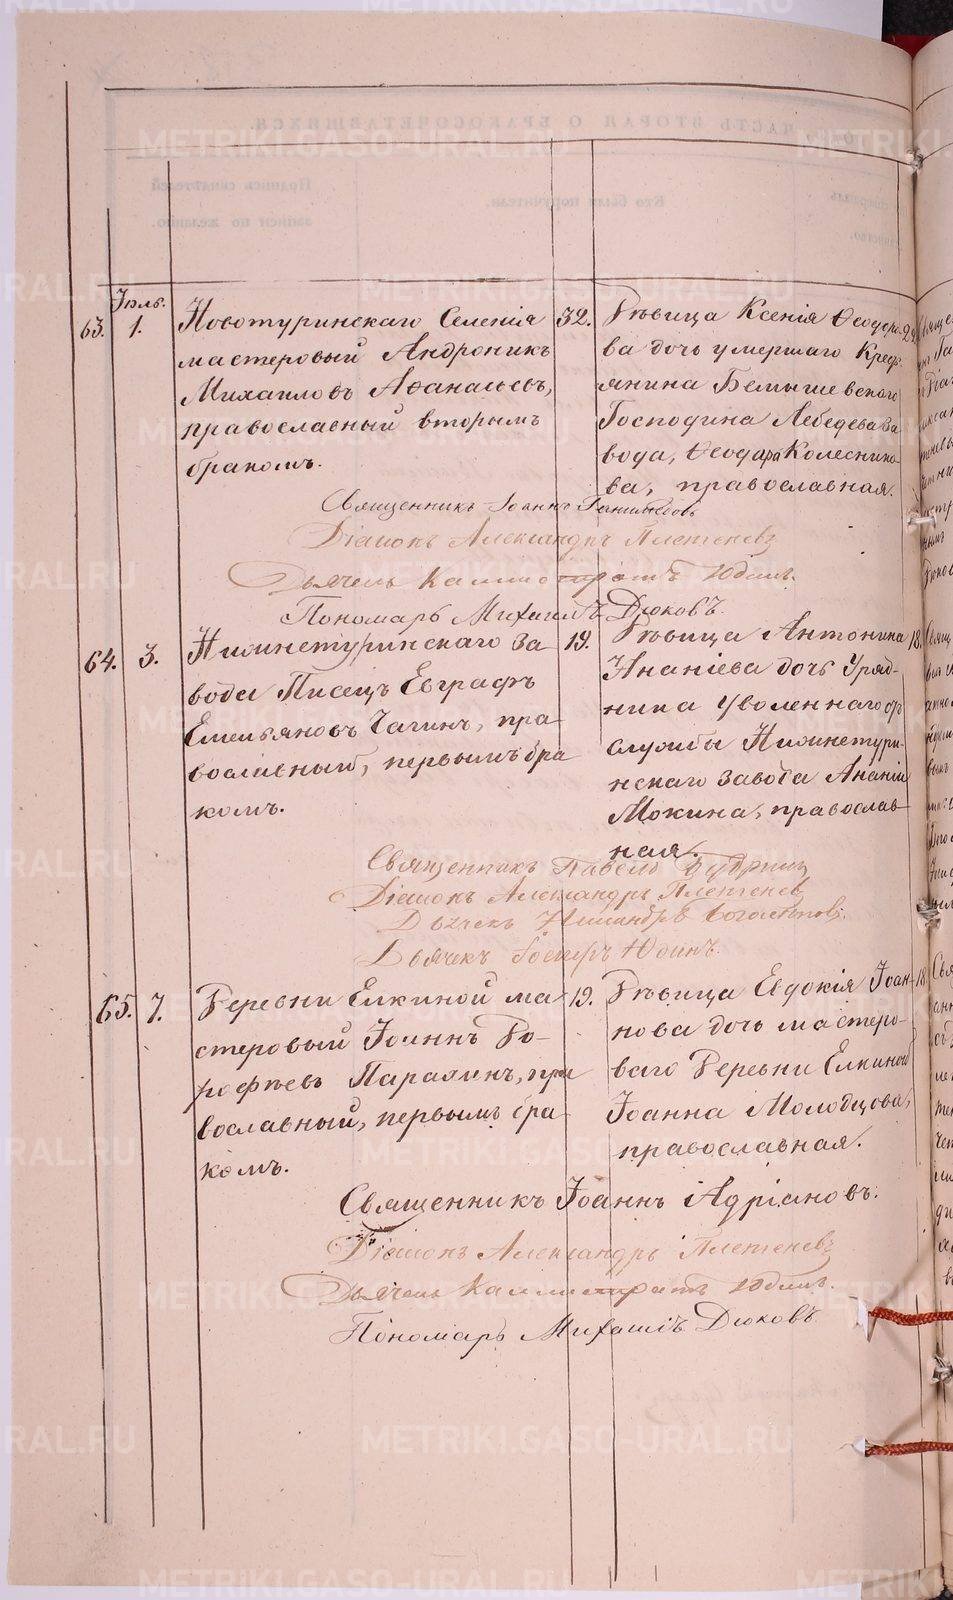 Іюль.
63. 1. Новотуринскаго Селенія
мастеровый Андроникъ
Михаиловъ Аѳанасьевъ,
православный вторымъ
бракомъ.
32. Дѣвица Ксенія Ѳеодоро-
ва дочь умершаго Кресть-
янина Бемышевскаго
Господина Лебедева За
вода, Ѳеодора Колеснико-
ва, православная.
Священникъ Іоаннъ
Діаконъ Александръ Плетеневъ
Дьячекъ Каллистратъ Юдинъ.
Пономарь Михаилъ Дюковъ.
64. 3. Нижнетуринскаго За
вода Писецъ Евграфъ
Емельяновъ Чагинъ, пра-
вославный, первымъ бра
комъ.
19. Дѣвица Антонина
Ананіева дочь Уряд-
ника уволеннаго отъ
службы Нижнетури-
нскаго завода Ананіи
Мокина, православ-
ная.
18.
Священникъ Павелъ
Діаконъ Александръ Плетеневъ
Дьячекъ
Дьячекъ Юдинъ.
65. 7. Деревни Елкиной ма-
стеровый Іоаннъ До-
рофѣевъ Параминъ, пра
вославный, первымъ бра-
комъ.
19. Дѣвица Евдокія Іоан-
нова дочь мастеро-
ваго Деревни Елкиной
Іоанна Молодцова,
православная.
18
Священникъ Іоаннъ Адріановъ.
Діаконъ Александръ Плетеневъ
Дьячекъ Каллистратъ Юдинъ.
Пономарь Михаилъ Дюковъ
METRIKI.GASO-URAL.RU